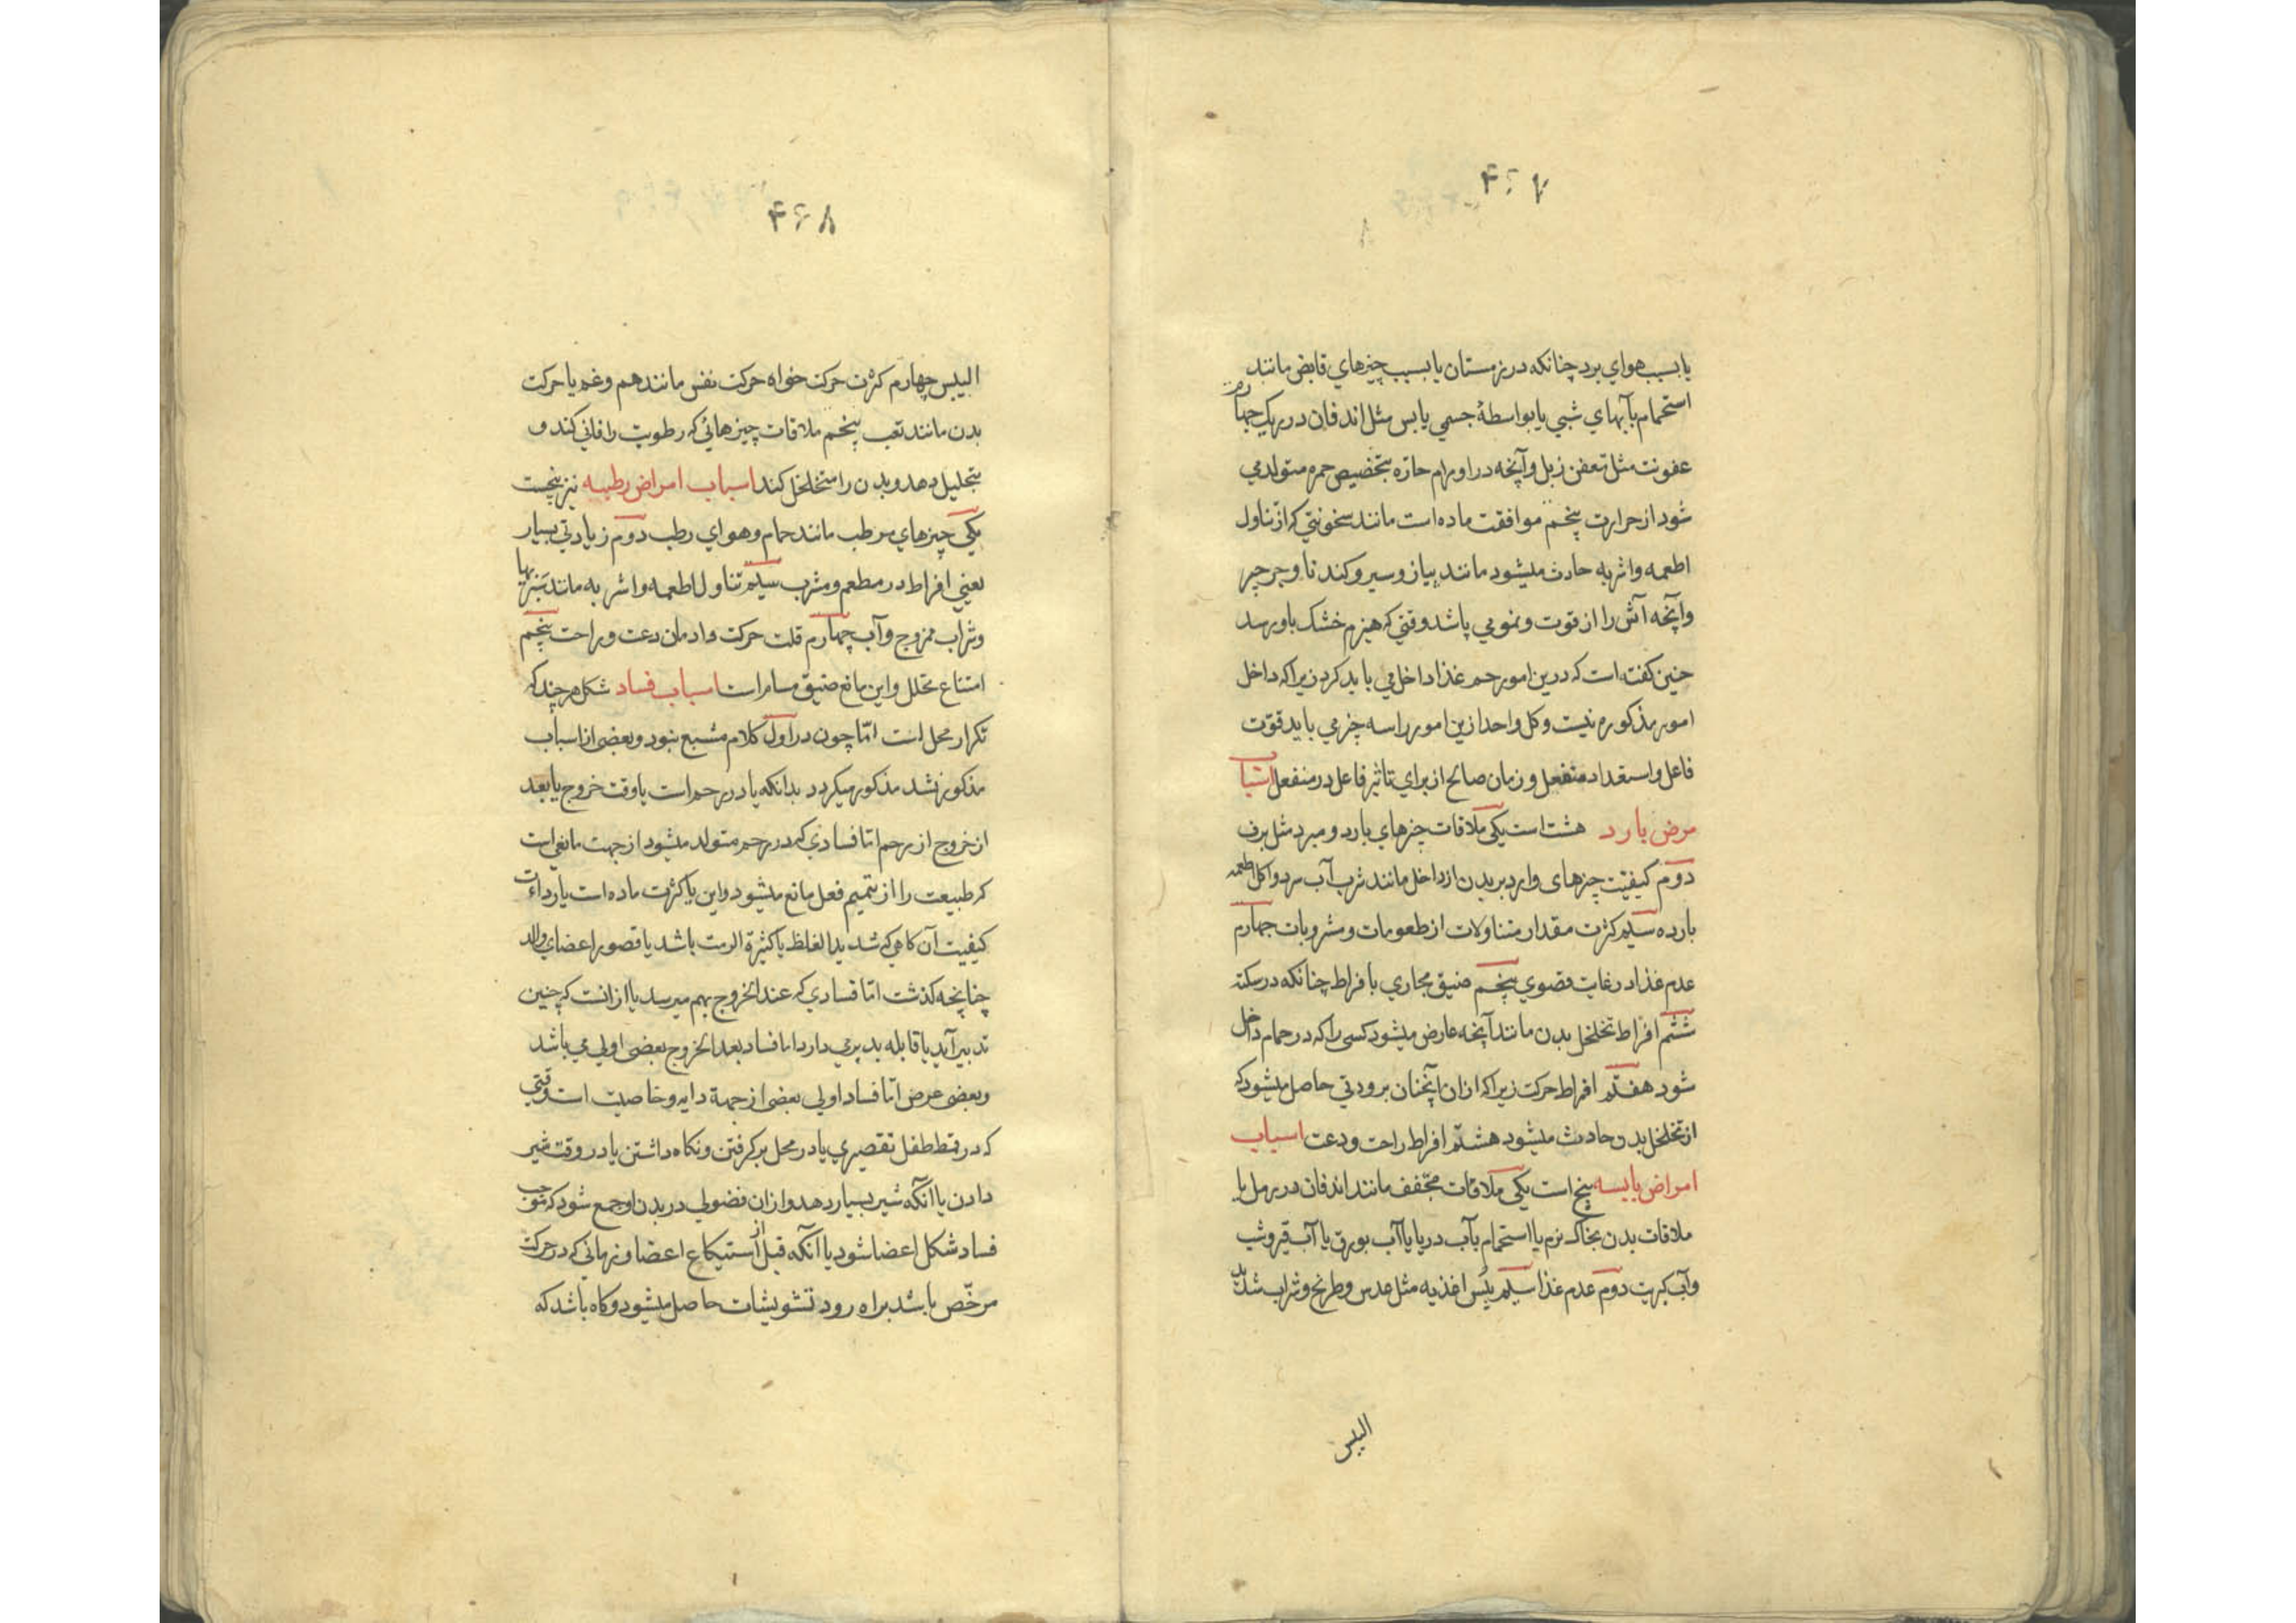 ۴۶۷
یا بسبب هوای برد چنانکه در زمستان یا بسبب چیزهای قابض مانند
استحمام بآبهای شبی یا بواسطهٔ جسمی یابس مثل اندفان در ریک چهارم
عفونت مثل تعفن زبل و آنچه در اورام حاره بتخصیص حمره متولد می
شود از حرارت پنجم موافقت ماده است مانند سخونتی که از تناول
اطعمه و اشربه حادث میشود مانند پیاز و سیر و کندنا و جرجیر
و آنچه آتش را از قوت و نمو می باشد وقتی که هیزم خشک باو رسد
چنین گفته است که درین امور حم غذا داخل می باید کرد زیرا که داخل
امور مذکوره نیست و کل واحد ازین امور را سه چیز می باید قوّت
فاعل و استعداد منفعل و زمان صالح از برای تاثیر فاعل در منفعل اسباب
مرض بارد هشت است یکی ملاقات چیزهای بارد و مبرد مثل برف
دوم کیفیّت چیزهای وارد بر بدن از داخل مانند شرب آب سرد و اکل اطعمه
بارده سیم کثرت مقدار متناولات از طعومات و مشروبات چهارم
عدم غذا در غایت قصوی پنجم ضیق مجاری بافراط چنانکه در سکته
ششم افراط تخلخل بدن مانند آنچه عارض میشود کسی را که در حمام داخل
شود هفتم افراط حرکت زیرا که از ان آنچنان برودتی حاصل میشود که
از تخلخل بدن حادث میشود هشتم افراط راحت و دعت اسباب
امراض یابسه پنج است یکی ملاقات مجفف مانند اندفان در رمل یا
ملاقات بدن بخاک نرم یا استحمام بآب دریا یا آب بورق یا آب قیر و شب
و آب کبریت دوم عدم غذا سیم یبس اغذیه مثل عدس و طرنج و شراب شدید
الیبس
۴۶۸
الیبس چهارم کثرت حرکت خواه حرکت نفس مانند هم و غم یا حرکت
بدن مانند تعب پنجم ملاقات چیزهائی که رطوبت را فانی کند و
بتحلیل دهد و بدن را متخلخل کند اسباب امراض رطبه نیز پنجست
یکی چیزهای مرطب مانند حمام و هوای رطب دوم زیادتی بسیار
یعنی افراط در مطعم و مشرب سیم تناول اطعمه و اشربه مانند بنزیها
و شراب ممزوج و آب چهارم قلت حرکت و ادمان دعت و راحت پنجم
امتناع تحلل و این مانع ضیق مسام است اسباب فساد شکل هر چند که
تکرار محل است امّا چون در اول کلام مشبع نبود و بعضی از اسباب
مذکور نشد مذکور میکردد بدانکه یا در رحم است یا وقت خروج یا بعد
از خروج از رحم اما فسادی که در رحم متولد میشود از جهت مانعی است
که طبیعت را از تتمیم فعل مانع میشود و این یا کثرت ماده است یا رداءت
کیفیت آن کاهی که شدید الغلظ یا کثیرة الرمت باشد یا قصور اعضای والد
چنانچه کذشت امّا فسادی که عند الخروج بهم میرسد یا از انست که چنین
تدبیر آید یا قابله بد برمی دارد اما فساد بعد الخروج بعضی اولی می باشد
و بعضی عرض امّا فساد اولی بعضی از جهة دایه و خاصیت است وقتی
که در قمط طفل تقصیری یا در محل بر کرفتن و نکاه داشتن یا در وقت شیر
دادن یا آنکه شیر بسیار دهد و از ان فضولی در بدن او جمع شود که موجب
فساد شکل اعضا شود یا آنکه قبل از استیکاع اعضا و زمانی که در حرکت
مرخّص باشد براه رود تشویشات حاصل میشود و کاه باشد که